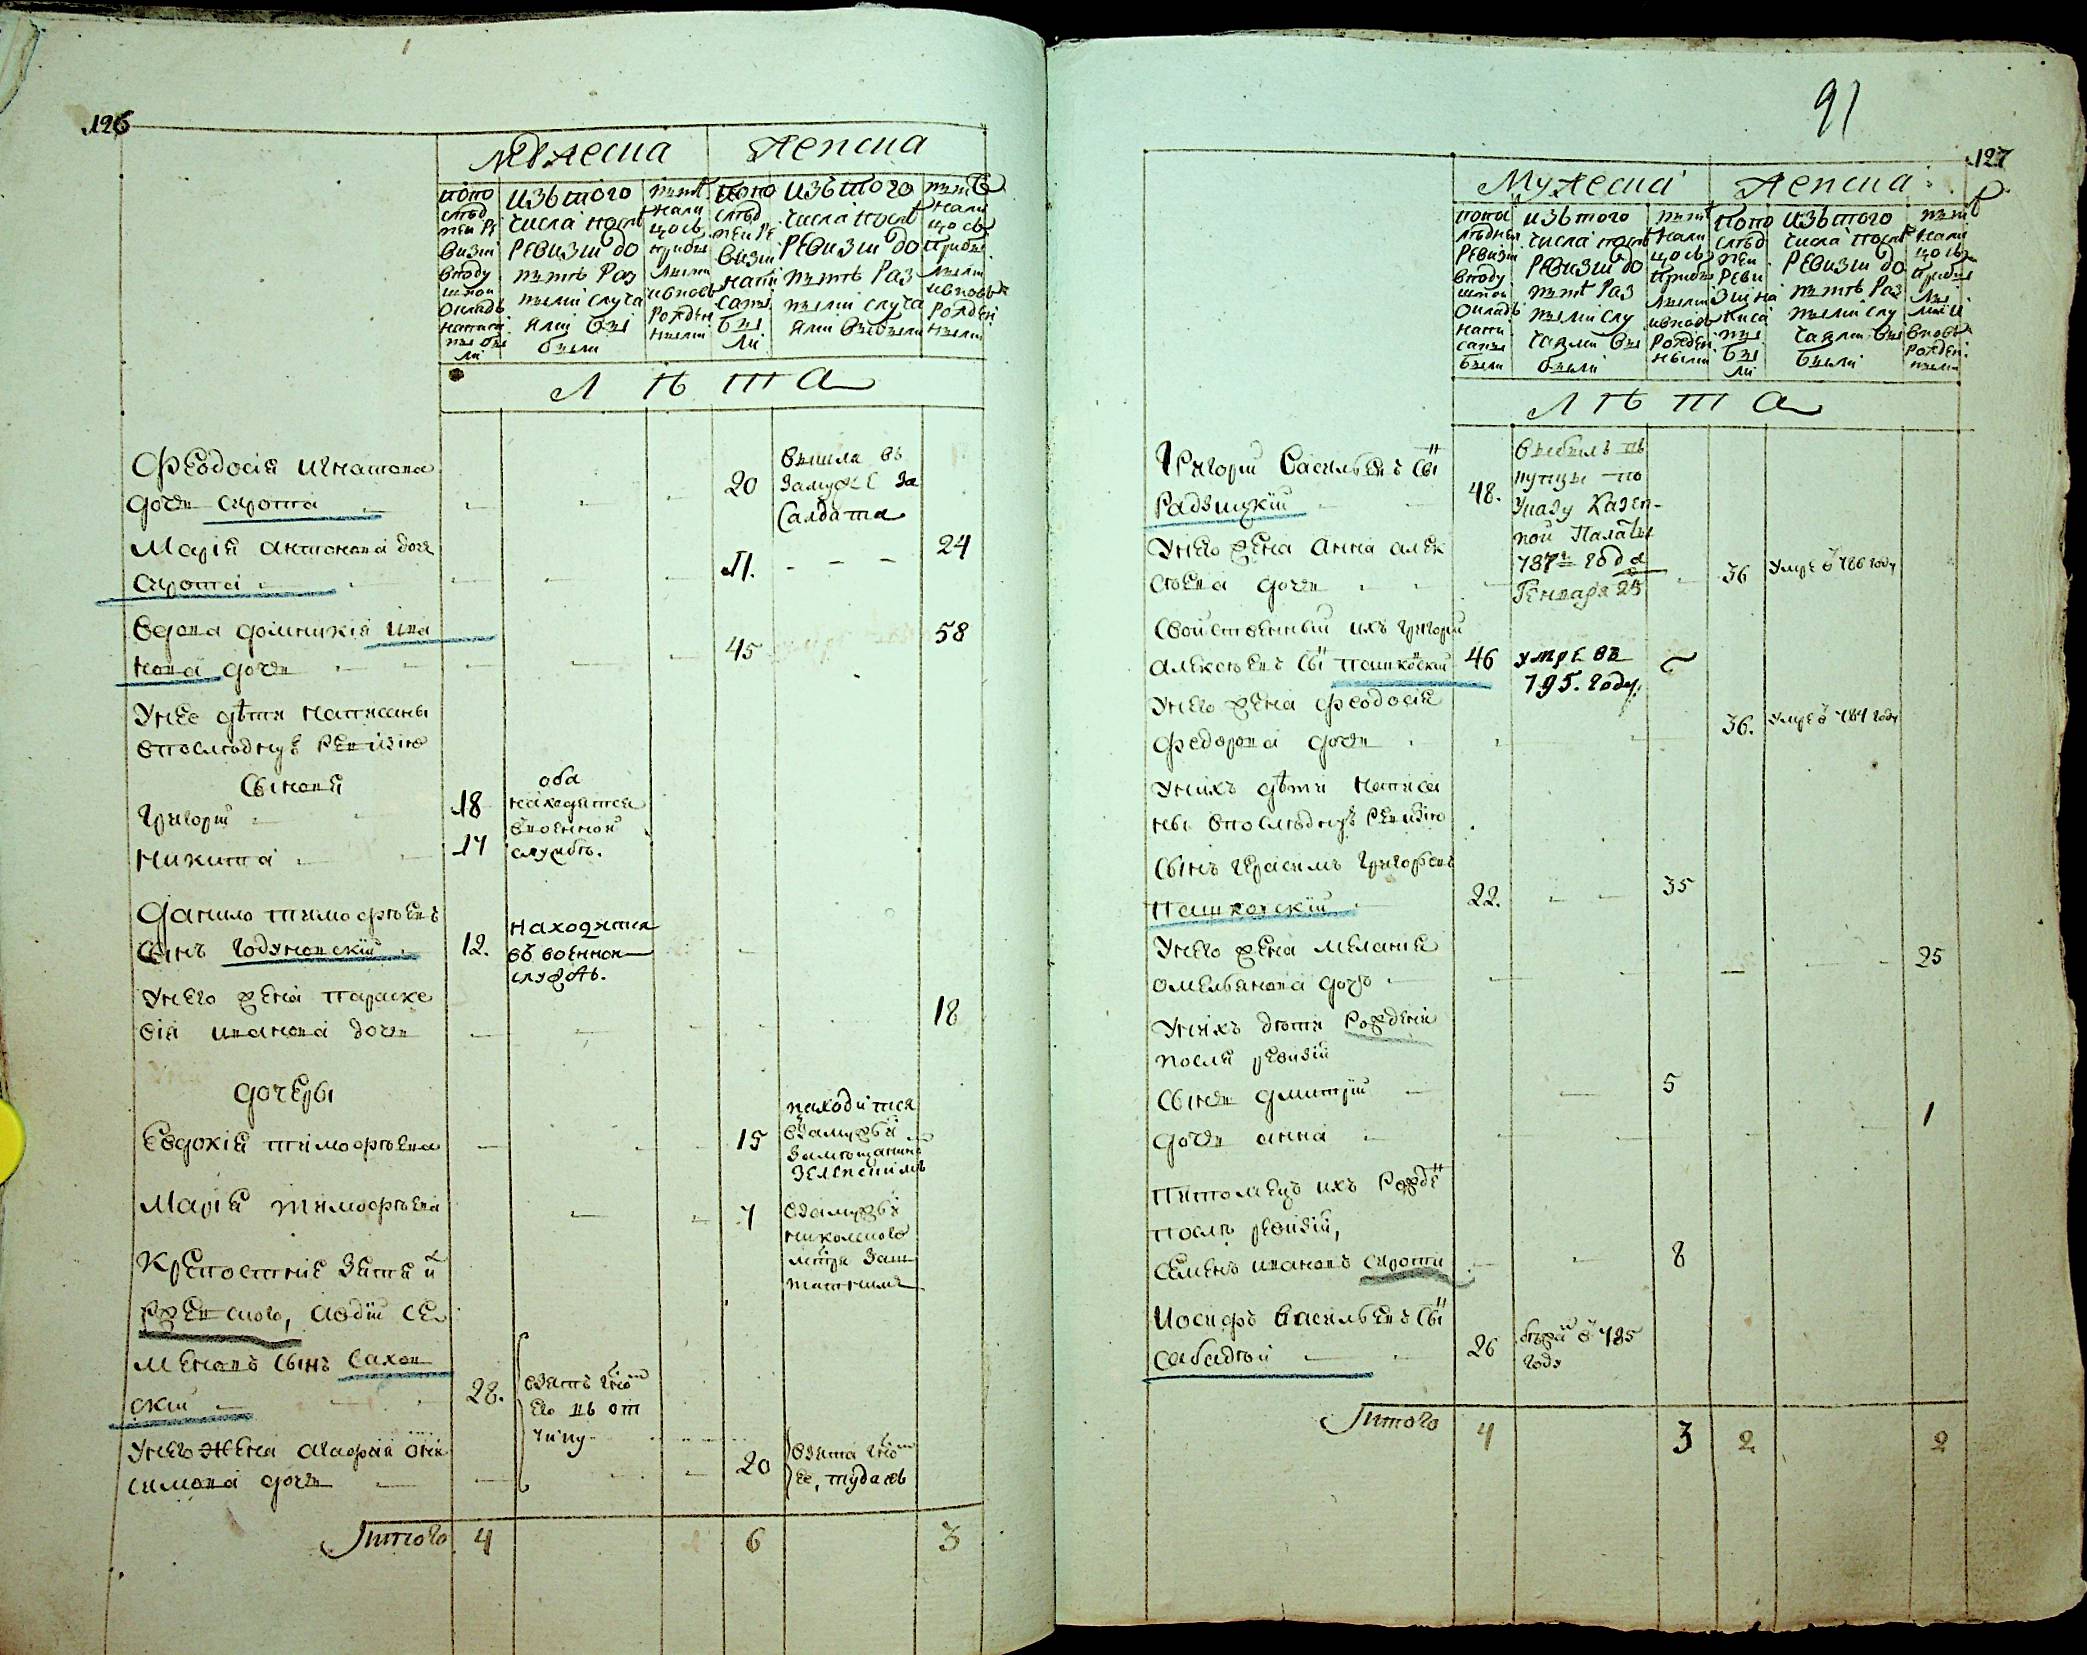 126
Мужеска Женска
попо
слѣд
ней ре
визіи
в поду
шном
окладѣ
написа
ны бы
ли
изъ того
числа послѣ
ревизіи до
нынѣ раз
ными случа
ями вы
были
нынѣ
нали
цо съ
прибы
лыми
и вновь
рожден
ными
попо
слѣд
ней ре
визіи
напи
саны
бы
ли
изъ того
числа послѣ
ревизіи до
нынѣ раз
ными случа
ями выбыли
нынѣ
нали
цо съ
прибы
лыми
и вновь
рожден
ными
Лѣта
Феодосія Игнатова
дочь сирота 20 вышла въ
замуже за
салдата
Марія Антонова дочь
сирота 11. 24
Вдова Домникія Ива
нова дочь 45 58
У нее дѣти написаны
в последнуе ревизію
Сыновя
Григорій 18
Никита 17
оба
находятся
в военной
службѣ.
Данило Тимофѣевъ
сынъ Годуновскій 12.
находятся
въ военной
службѣ.
У него жена Параске
вія Иванова дочь 18
дочеры
Евдокія Тимофѣева 15
находится
в замужьи
за мѣщанино
Зеленскимъ
Марія Тимофѣева 7
в замужьи
Крепостніе
Авдій Се
меновъ сынъ Сахов
скій 28.
взятъ
его въ от
чину
У него жена Агафія Они
симова дочь 20
взята
ее, туда жъ
Итого 4 6 3
91
127
Мужеска Женска
попо
слѣдней
ревизіи
в поду
шном
окладѣ
напи
саны
были
изъ того
числа послѣ
ревизіи до
нынѣ раз
ными слу
чаями вы
были
нынѣ
нали
цо съ
прибы
лыми
и вновь
рожден
ными
попо
слѣд
ней
реви
зіи на
писа
ны
бы
ли
изъ того
числа послѣ
ревизіи до
нынѣ раз
ными слу
чаями вы
были
нынѣ
нали
цо съ
прибы
лы
ми и
вновь
рожден
ными
Лѣта
Григорій Васильевъ сы
Радзицкій 48.
выбылъ въ
по
указу Казен-
ной Палаты
787 года
Генваря 25
У него жена Анна Алек
сеева дочь 36 умре в 786 году
Свойственный ихъ Григорій
Алексѣевъ сы Пашковскій 46 умре въ
795. году.
У него жена Феодосія
Федорова дочь 36. умре в 787 году
У нихъ дѣти написа
ны в последнуе ревизію
Сынъ Герасимъ Григорьевъ
Пашковскій 22. 35
У него жена Меланія
Омельянова дочь 25
У нихъ дѣти рождени
после ревизіи
Сынъ Дмитрій 5
дочь Анна 1
Питомецъ ихъ рожде
послѣ ревизіи,
Семенъ Ивановъ сирота 8
Иосифъ Васильевъ сы
Сабадтой 26 785
году
Итого 4 3 2 2